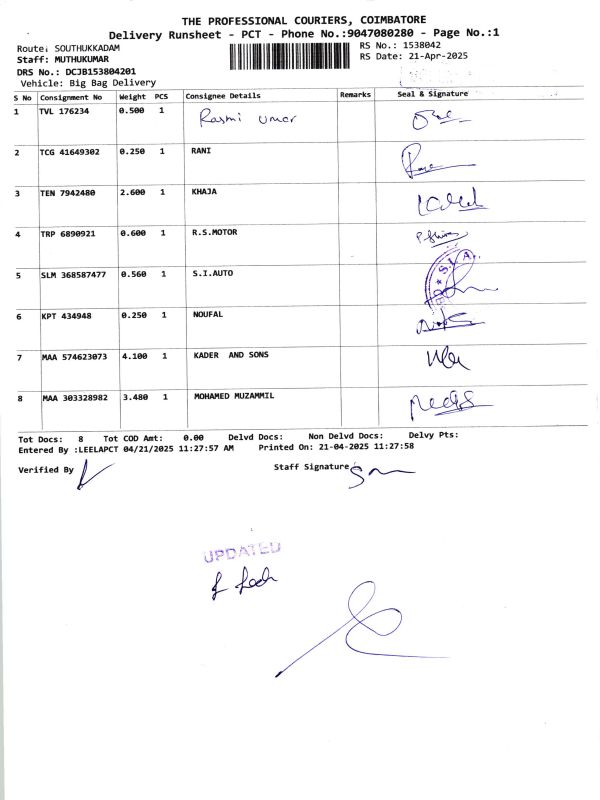 THE PROFESSIONAL COURIERS, COIMBATORE
Delivery Runsheet - PCT - Phone No.:9047080280 - Page No.:1
Route: SOUTHUKKADAM RS No.: 1538042
Staff: MUTHUKUMAR RS Date: 21-Apr-2025
DRS No.: DCJB153804201
Vehicle: Big Bag Delivery
S No Consignment No Weight PCS Consignee Details Remarks Seal & Signature
1 TVL 176234 0.500 1 Rasmi umar
2 TCG 41649302 0.250 1 RANI
3 TEN 7942480 2.600 1 KHAJA
4 TRP 6890921 0.600 1 R.S.MOTOR
5 SLM 368587477 0.560 1 S.I.AUTO
6 KPT 434948 0.250 1 NOUFAL
7 MAA 574623073 4.100 1 KADER AND SONS
8 MAA 303328982 3.480 1 MOHAMED MUZAMMIL
Tot Docs: 8 Tot COD Amt: 0.00 Delvd Docs: Non Delvd Docs: Delvy Pts:
Entered By :LEELAPCT 04/21/2025 11:27:57 AM Printed On: 21-04-2025 11:27:58
Verified By Staff Signature
UPDATED